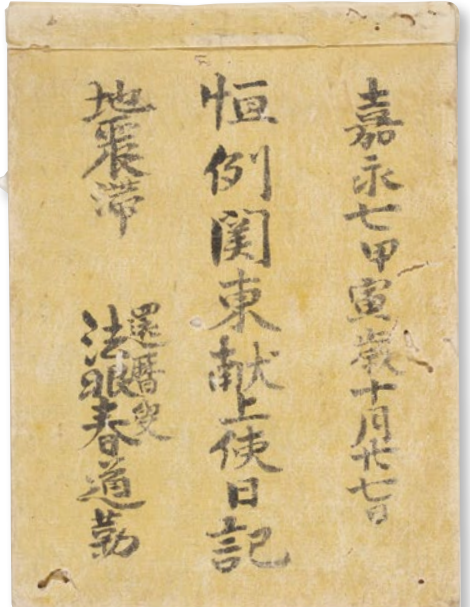 嘉永七甲寅歳十月廿七日
恒例関東献上使日記
地震滞
還暦叟
法眼春道勤